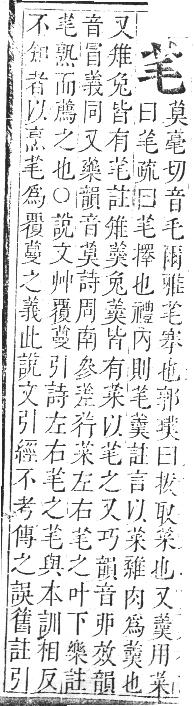 芼
莫毫切音毛爾雅芼搴也郭璞曰拔取菜也又羹用菜
曰芼疏曰芼擇也禮內則芼羹註言以菜雜肉爲羹也
又雉兔皆有芼註雉羹兔羹皆有菜以芼之又巧韻音丣效韻
音冒義同又藥韻音莫詩周南參差荇菜左右芼之叶下樂註
芼熟而薦之也○說文艸覆蔓引詩左右芼之芼與本訓相反
不知者以烹芼爲覆蔓之義此說文引經不考傳之誤舊註引